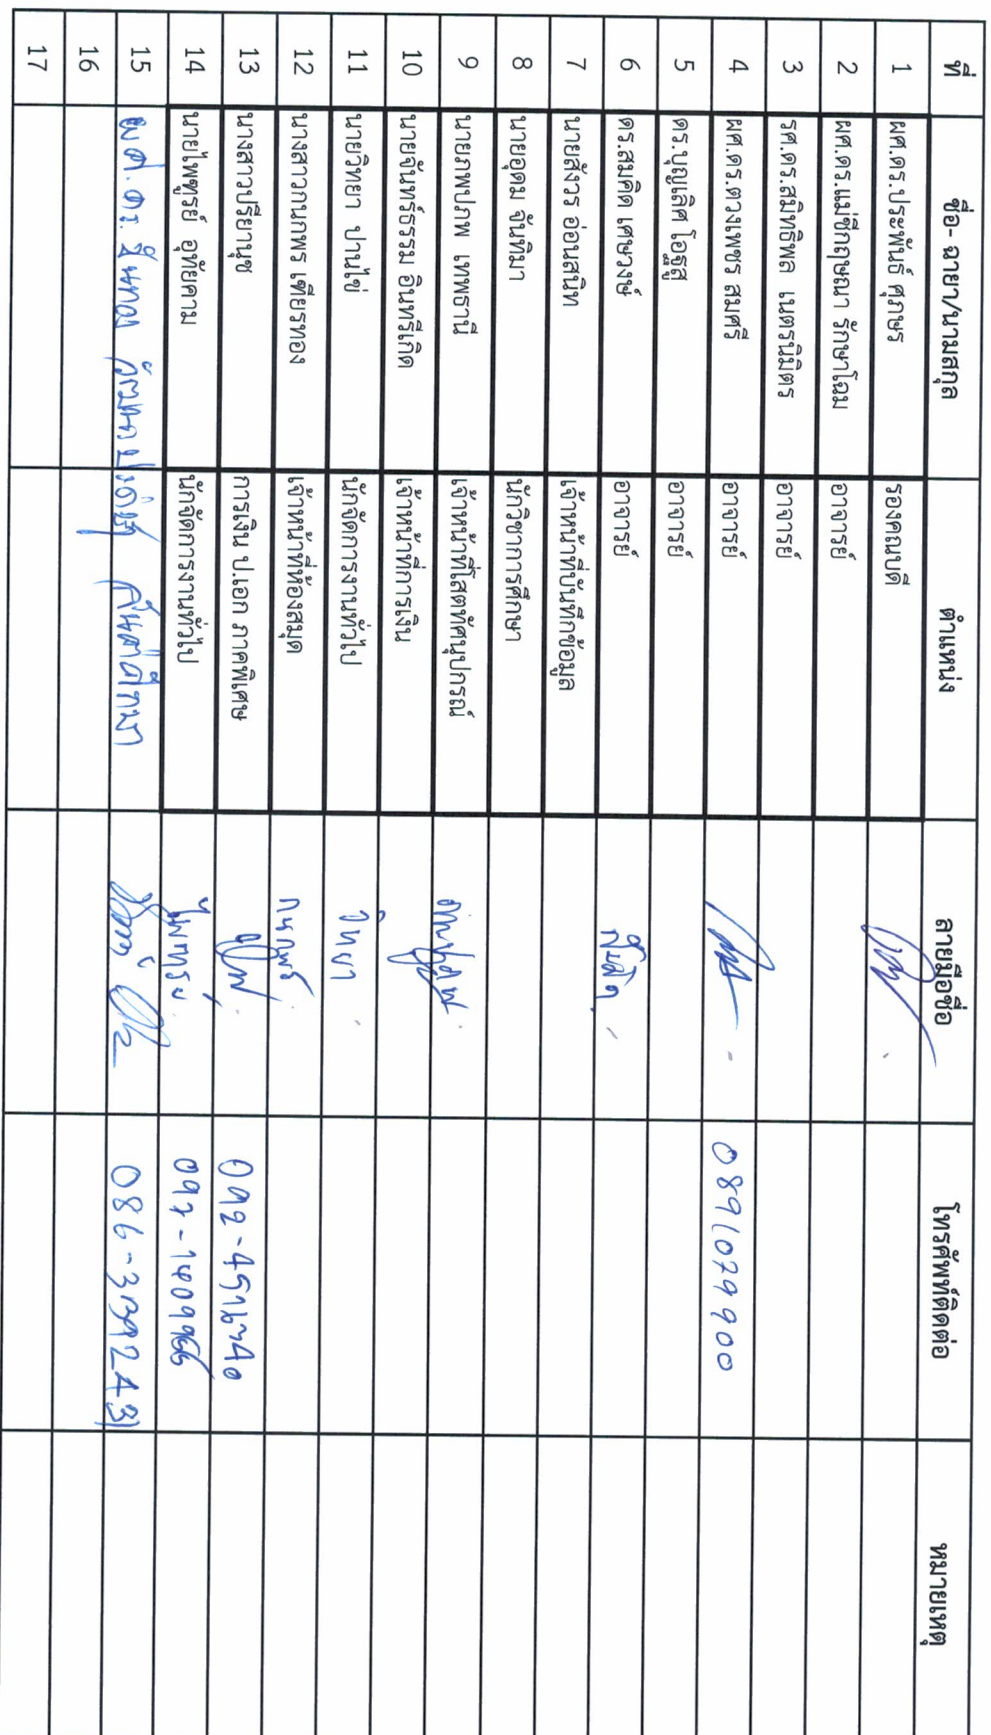 ที่ ชื่อ- ฉายา/นามสกุล ตำแหน่ง ลายมือชื่อ โทรศัพท์ติดต่อ หมายเหตุ
1 ผศ.ดร.ประพันธ์ ศุภษร รองคณบดี
2 ผศ.ดร.แม่ชีกฤษณา รักษาโฉม อาจารย์
3 รศ.ดร.สมิทธิพล เนตรนิมิตร อาจารย์
4 ผศ.ดร.ดวงเพชร สมศรี อาจารย์ 0891079900
5 ดร.บุญเลิศ โอฐสู อาจารย์
6 ดร.สมคิด เศษวงษ์ อาจารย์ สมคิด
7 นายสังวร อ่อนสนิท เจ้าหน้าที่บันทึกข้อมูล
8 นายอุดม จันทิมา นักวิชาการศึกษา
9 นายภพปภพ เทพธานี เจ้าหน้าที่โสตทัศนุปกรณ์
10 นายจันทร์ธรรม อินทรีเกิด เจ้าหน้าที่การเงิน
11 นายวิทยา ปานไข่ นักจัดการงานทั่วไป วิทยา
12 นางสาวกนกพร เฑียรทอง เจ้าหน้าที่ห้องสมุด กนกพร
13 นางสาวปรียานุช การเงิน ป.เอก ภาคพิเศษ
14 นายไพฑูรย์ อุทัยคาม นักจัดการงานทั่วไป ไพฑูรย์
15 ผศ.ดร. 086-3392431
16
17